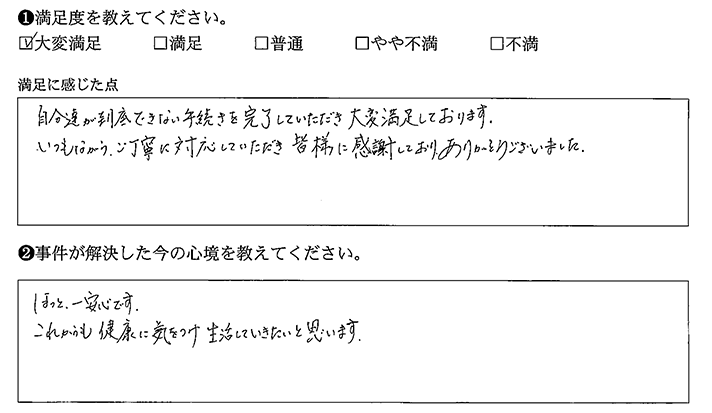 ❶満足度を教えてください。
☑大変満足 □満足 □普通 □やや不満 □不満
満足に感じた点
自分達が到底できない手続きを完了していただき大変満足しております。
いつもながら、ご丁寧に対応していただき皆様に感謝しており、ありがとうございました。
❷事件が解決した今の心境を教えてください。
ほっと、一安心です。
これからも健康に気をつけ生活していきたいと思います。